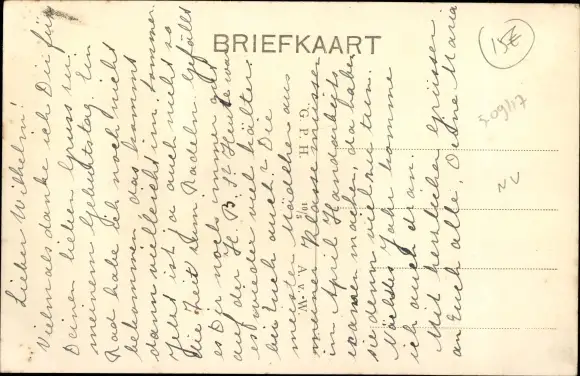 BRIEFKAART
15€
G. P. H.
10/5
A. v. W.
Lieber Wilhelm!
Vielmals danke ich Dir für
Deinen lieben Gruss zu
meinem Geburtstag. Ein
Rad habe ich noch nicht
bekommen, das kommt
dann vielleicht im Sommer.
Jetzt ist ja auch nicht so
die Zeit zum Radeln. Gefällt
es Dir noch immer gut
auf der H. B. S.? Heute war
es wieder viel kälter.
bei Euch auch? Die
meisten Mädchen aus
meiner Klasse müssen
im April Handarbeits-
examen machen, da haben
sie denn viel zu tun.
Nächstes Jahr komme
ich auch dran.
Mit herzlichen Grüssen
an Euch alle, Deine Maria